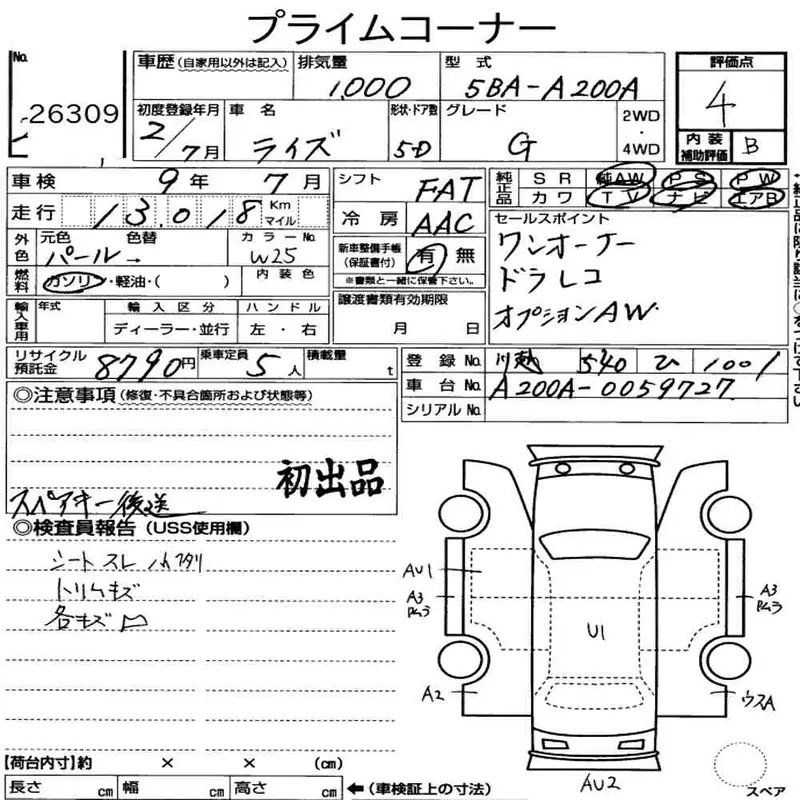 プライムコーナー
No. 26309
車歴 (自家用以外は記入)
排気量 1,000
型式 5BA-A200A
評価点 4
初度登録年月 2/7月
車名 ライズ
形状・ドア数 5D
グレード G
2WD・4WD
内装補助評価 B
車検 9年 7月
走行 13,018 Km マイル
シフト FAT
冷房 AAC
純正品 SR 純AW PS PW
カワ TV ナビ エアB
外色 元色 パール→ 色替
カラーNo. W25
内装色
燃料 ガソリン・軽油・( )
新車整備手帳(保証書付) 有 無
※書類と一緒に保管下さい。
セールスポイント
ワンオーナー
ドラレコ
オプションAW.
輸入車用 年式 輸入区分 ハンドル
ディーラー・並行 左・右
譲渡書類有効期限
月 日
リサイクル預託金 8790円
乗車定員 5人
積載量 t
登録No. 川越 540 ひ 1001
車台No. A200A-0059727
シリアルNo.
◎注意事項 (修復・不具合箇所および状態等)
初出品
スペアキー後送
◎検査員報告 (USS使用欄)
シートスレ
トリムキズ
各キズ凹
AU1
A3
A3
U1
A2
ウスA
AU2
スペア
【荷台内寸】約 × × (cm)
長さ cm 幅 cm 高さ cm ←(車検証上の寸法)